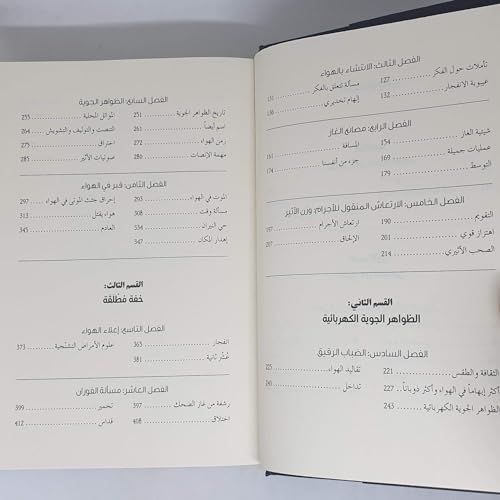 الفصل الثالث: الانتشاء بالهواء
تأملات حول الفكر ... 127 مسألة تتعلق بالفكر ... 131
غيبوبة الانفجار ... 132 إلهام تخديري ... 136
الفصل الرابع: مصانع الغاز
شيئية الغاز ... 154 المسافة ... 161
عمليات جميلة ... 169 جزء من أنفسنا ... 174
التوسط ... 179
الفصل الخامس: الارتعاش المنقول للأجرام: وزن الأثير
التقويم ... 190 ارتعاش الأجرام ... 197
اهتزاز قوي ... 201 الإلحاق ... 207
الصخب الأثيري ... 214
القسم الثاني:
الظواهر الجوية الكهربائية
الفصل السادس: الضباب الرقيق
الثقافة والطقس ... 221 تقاليد الهواء ... 225
أكثر إبهاماً في الهواء وأكثر ذوباناً ... 227 تداخل ... 240
الظواهر الجوية الكهربائية ... 243
الفصل السابع: الظواهر الجوية
تاريخ الظواهر الجوية ... 251 الموائل المحلية ... 255
اسم أيضاً ... 261 التنصت والتوليف والتشويش ... 264
زمن الهواء ... 272 اختراق ... 275
مهمة الإنصات ... 286 صوتيات الأثير ... 285
الفصل الثامن: قبر في الهواء
الموت في الهواء ... 293 إحراق جثث الموتى في الهواء ... 297
مسألة وقت ... 308 هواء يقتل ... 313
حي النيران ... 334 العادم ... 345
إهدار المكان ... 347
القسم الثالث:
خفة مُطلقة
الفصل التاسع: إعلاء الهواء
انفجار ... 365 علوم الأمراض التشنّجية ... 373
عُشر ثانية ... 381
الفصل العاشر: مسألة الفوران
رشفة من غاز الضحك ... 397 تخمير ... 399
اختلاق ... 408 قداس ... 412